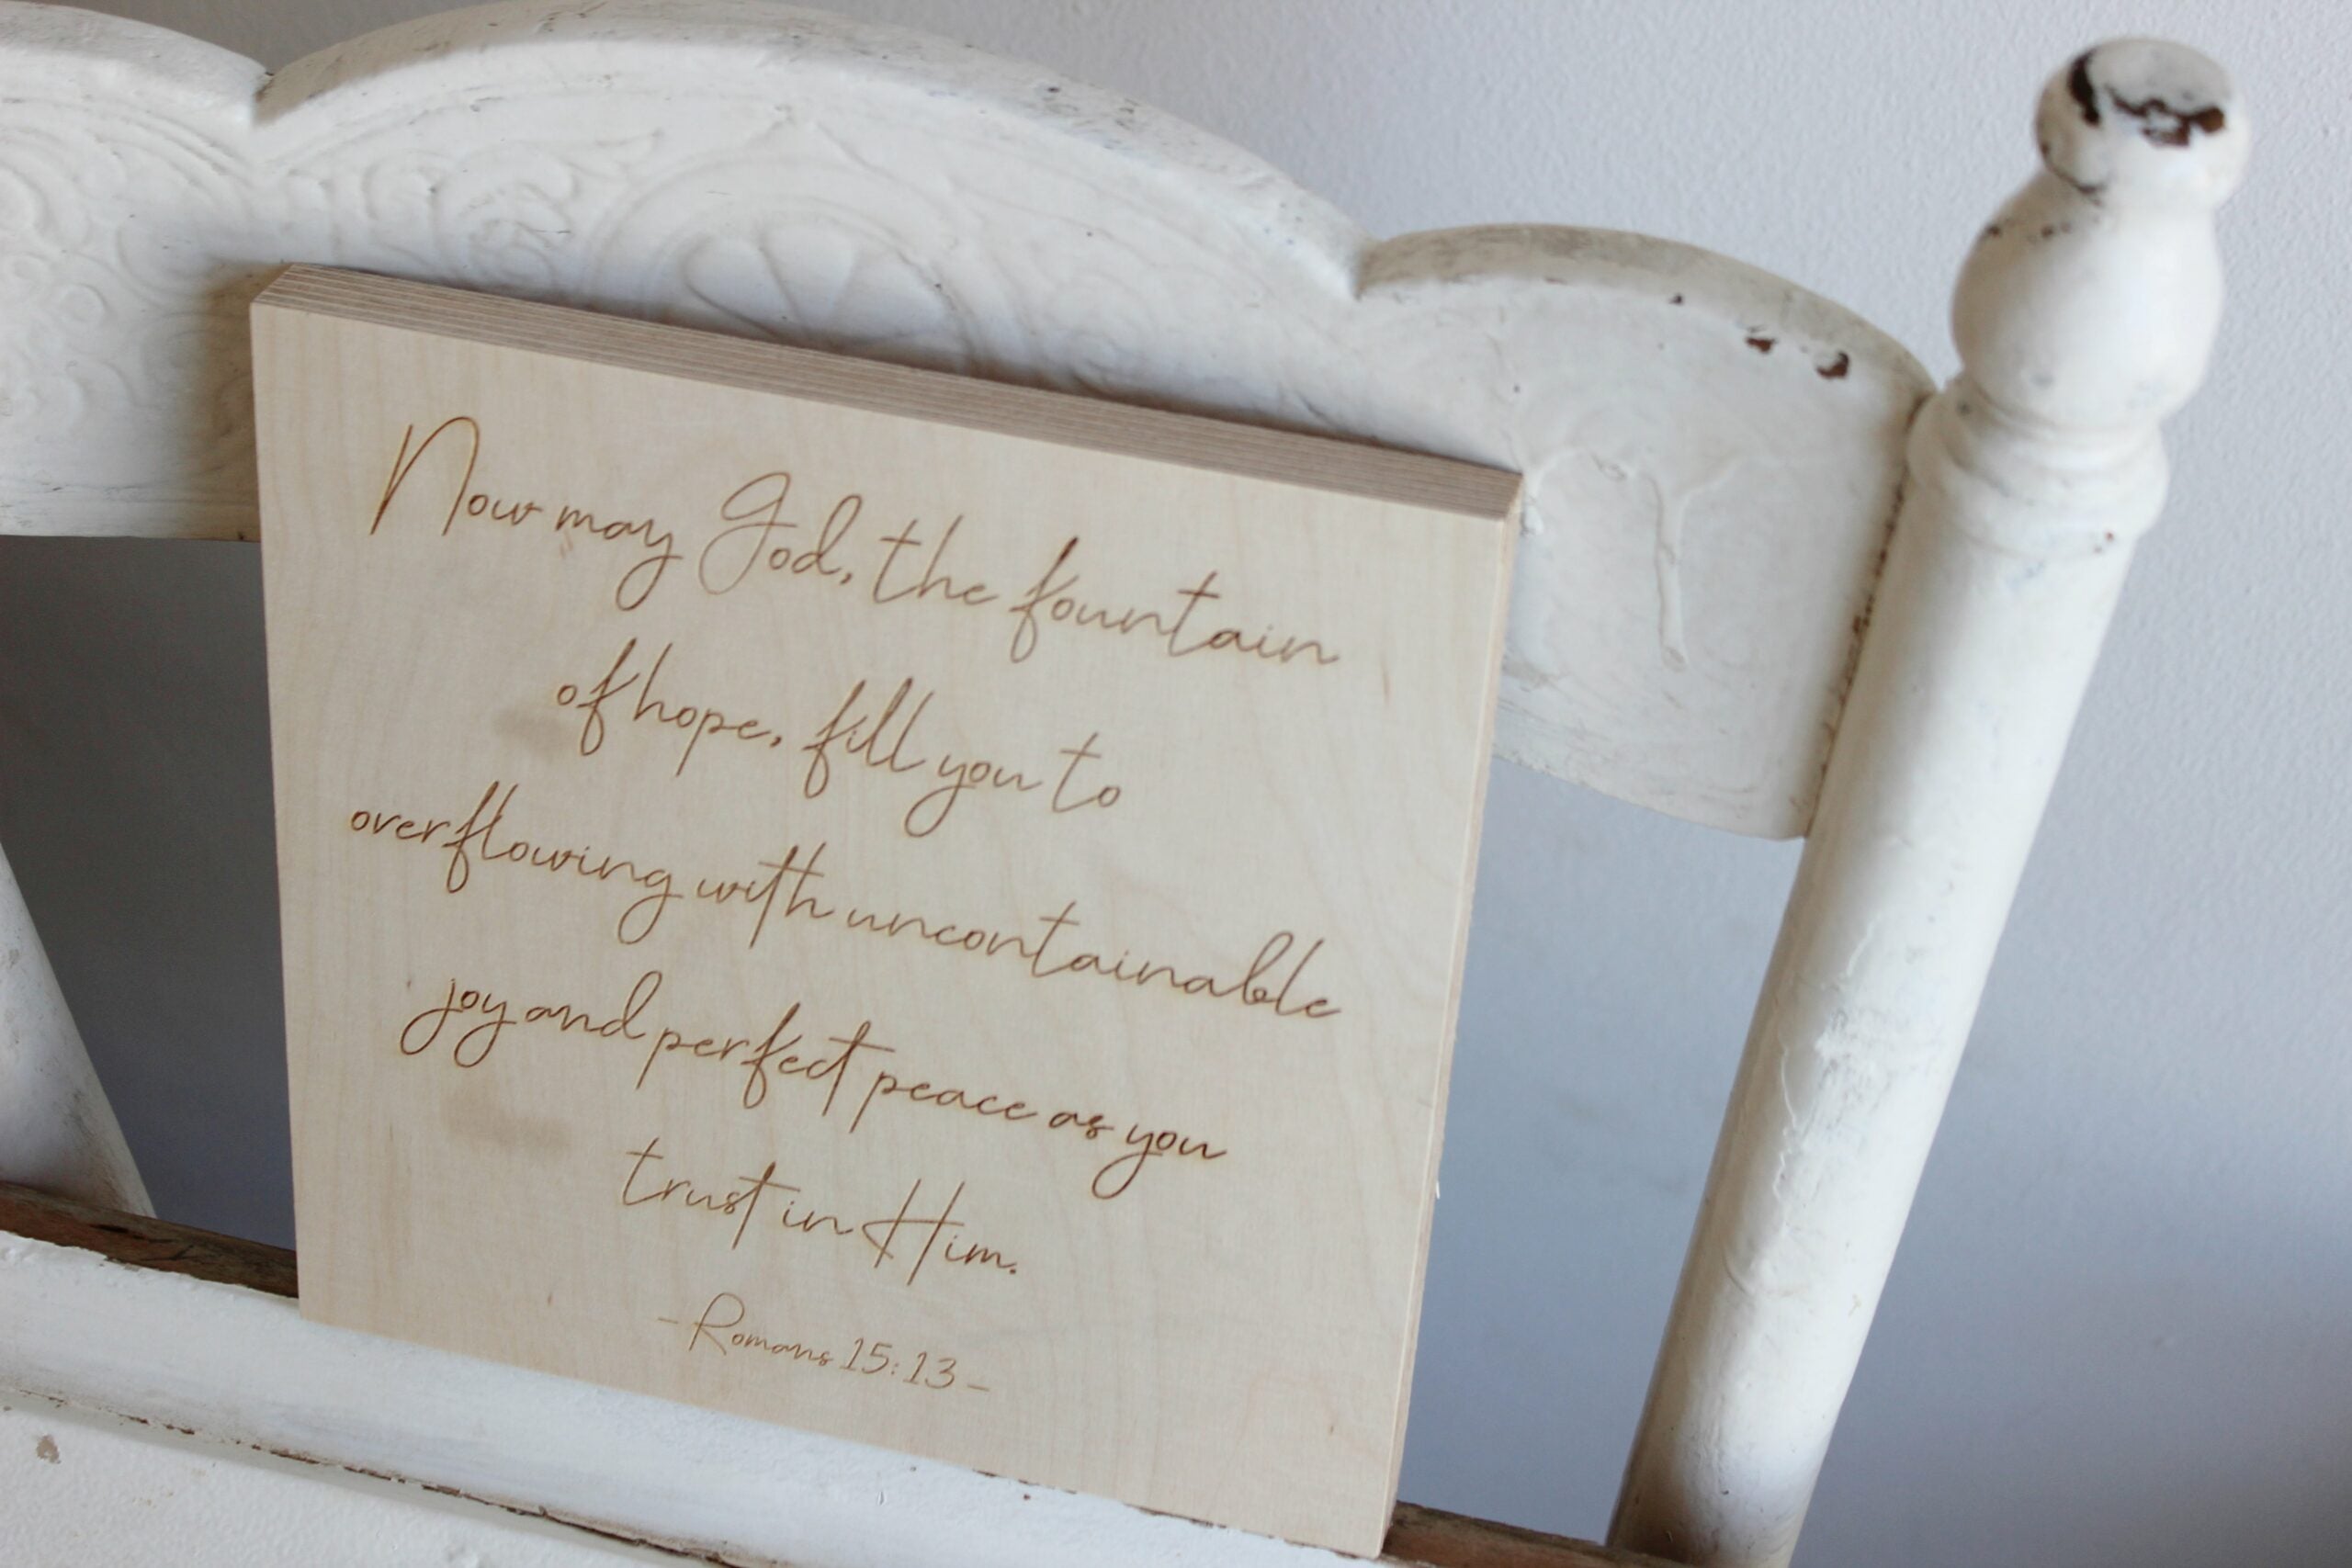 Now may God, the fountain
of hope, fill you to
overflowing with uncontainable
joy and perfect peace as you
trust in Him.
- Romans 15:13 -